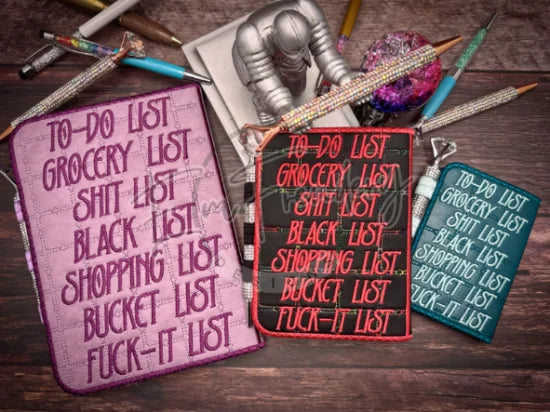 TO-DO LIST
GROCERY LIST
SHIT LIST
BLACK LIST
SHOPPING LIST
BUCKET LIST
FUCK-IT LIST
TO-DO LIST
GROCERY LIST
SHIT LIST
BLACK LIST
SHOPPING LIST
BUCKET LIST
FUCK-IT LIST
TO-DO LIST
GROCERY LIST
SHIT LIST
BLACK LIST
SHOPPING LIST
BUCKET LIST
FUCK-IT LIST